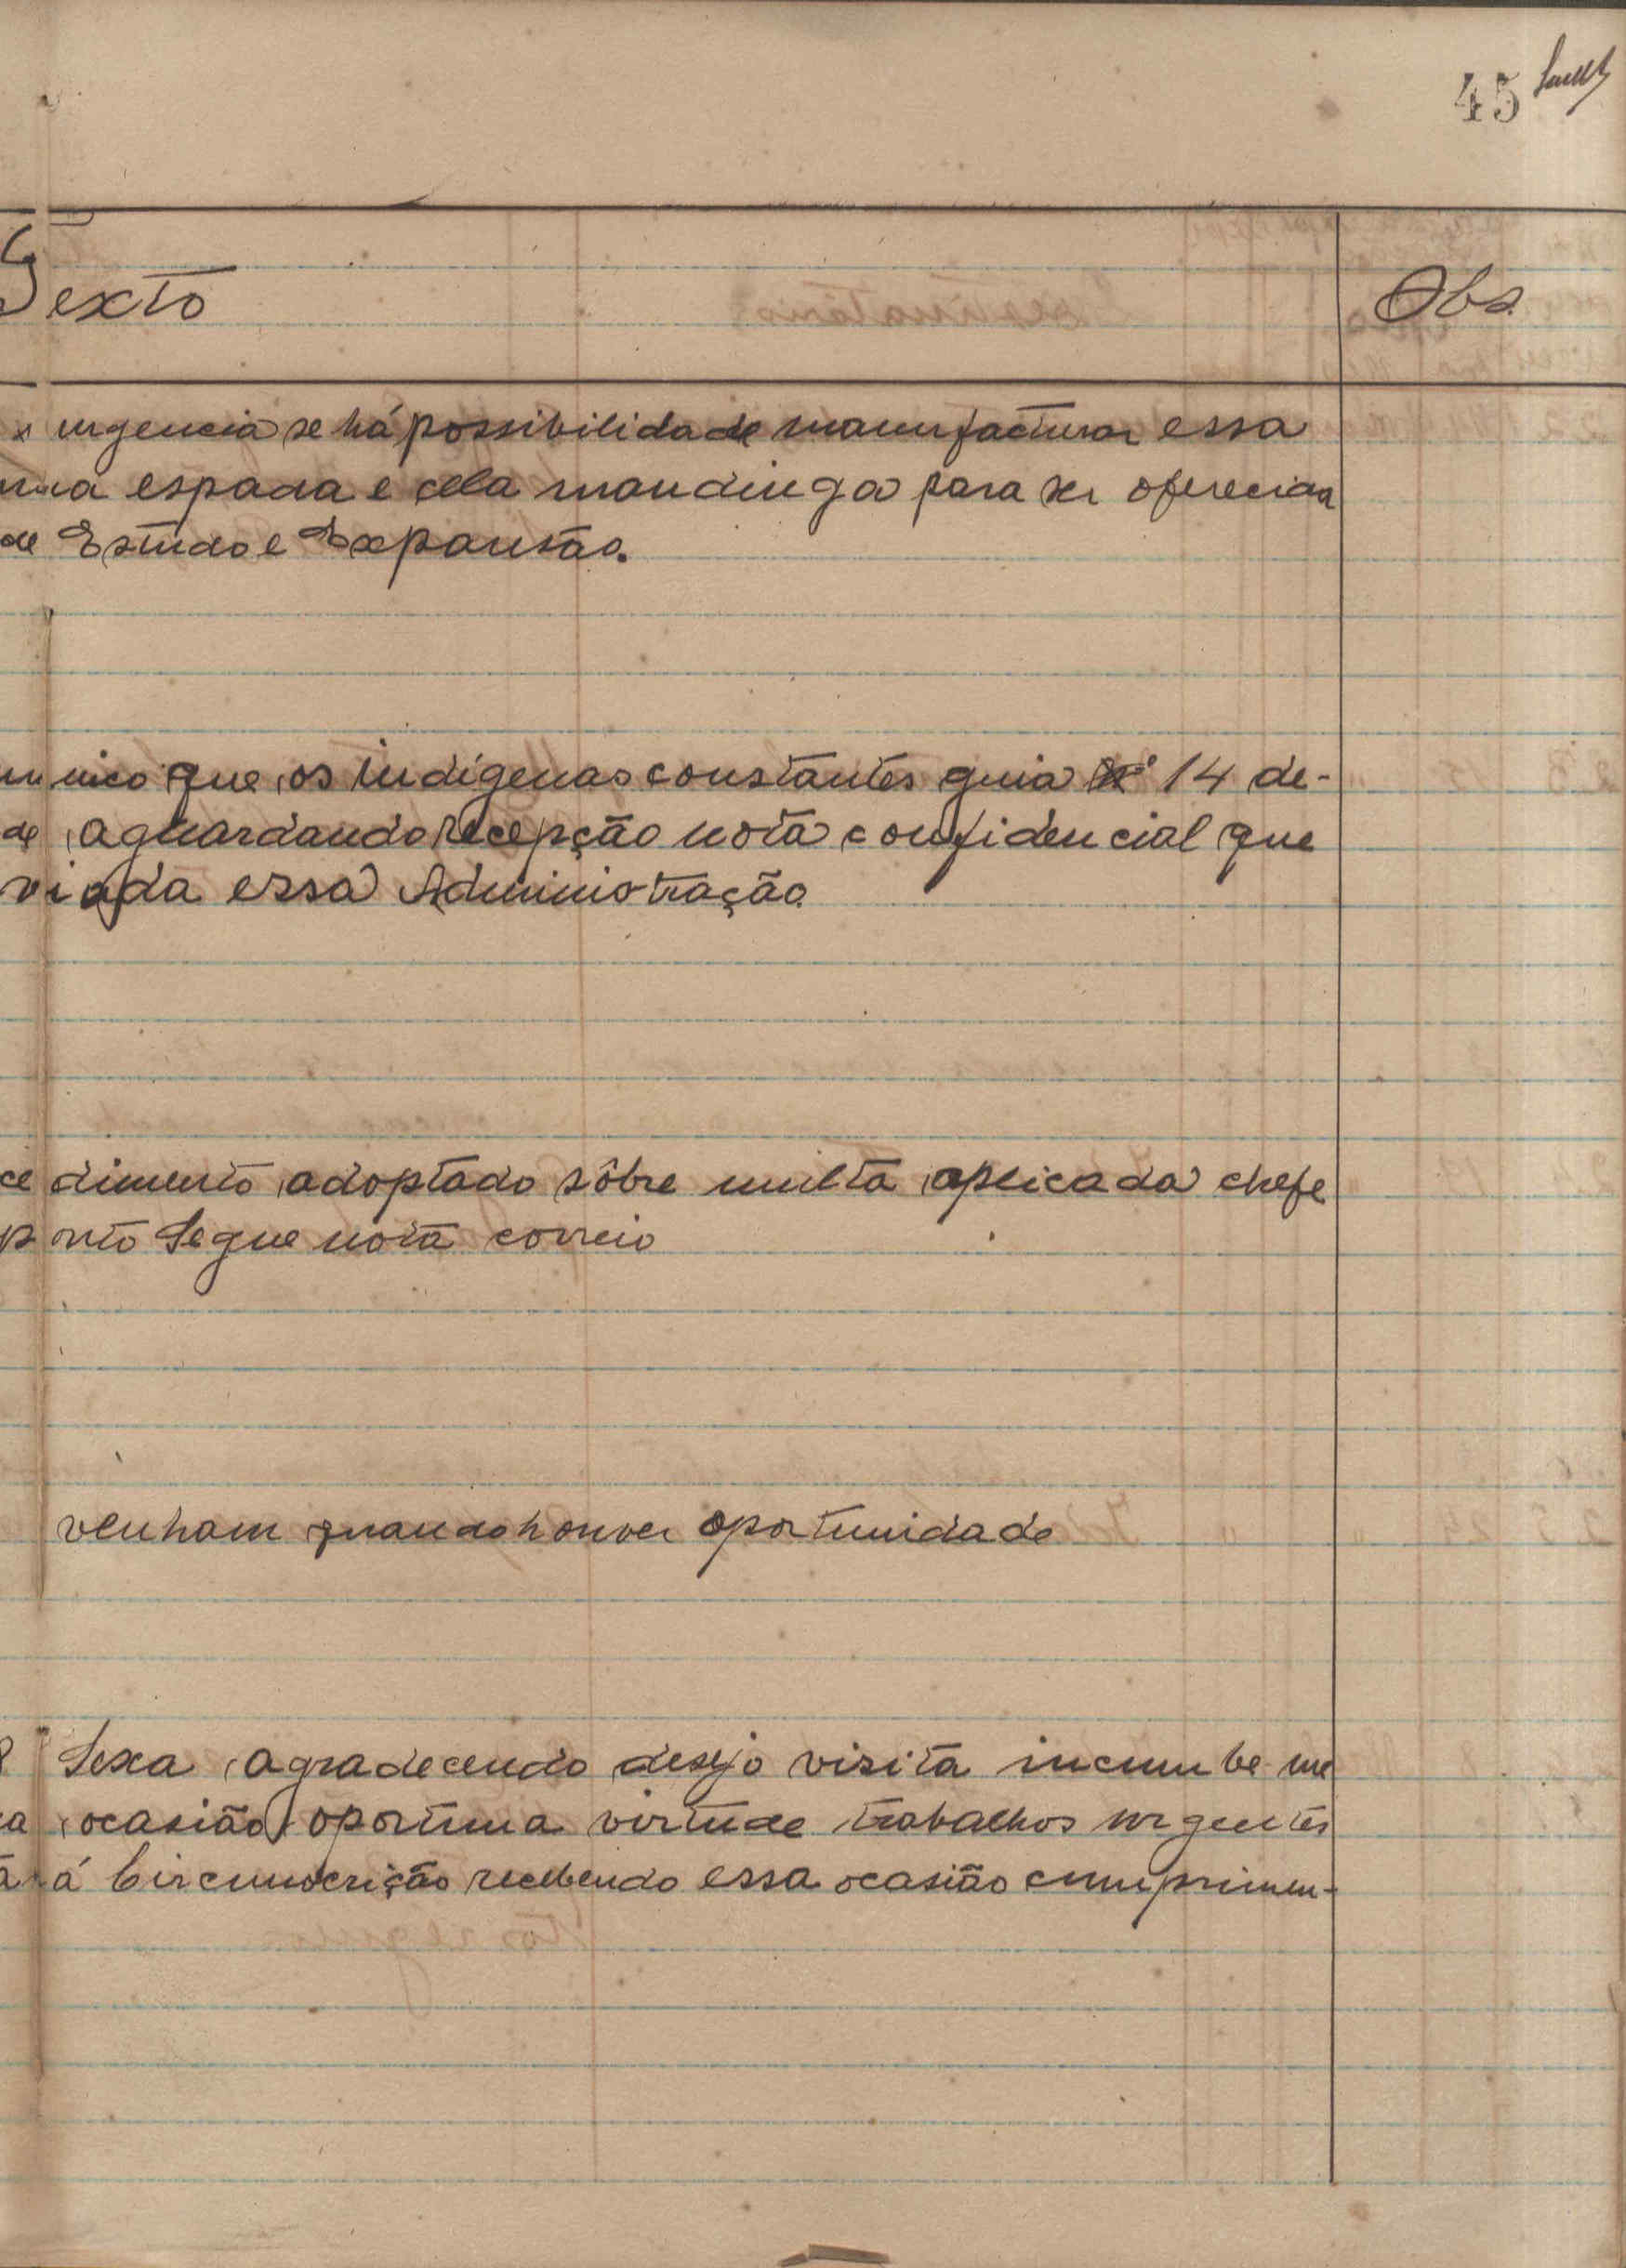 45
Texto
Obs.
urgencia se há possibilidade manufacturar essa
uma espada e cela mandinga para ser oferecida
de Estudo e Expansão.
unico que os indígenas constantes guia nº 14 de-
de aguardando recepção nota confidencial que
viada essa Administração
ce dimento adoptado sôbre multa aplicada chefe
posto Segue nota correio
venham quando houver oportunidade
Sexa agradecendo desejo visita incumbe-me
ocasião oportuna virtude trabalhos urgentes
á Circunscrição recebendo essa ocasião cumprimen-